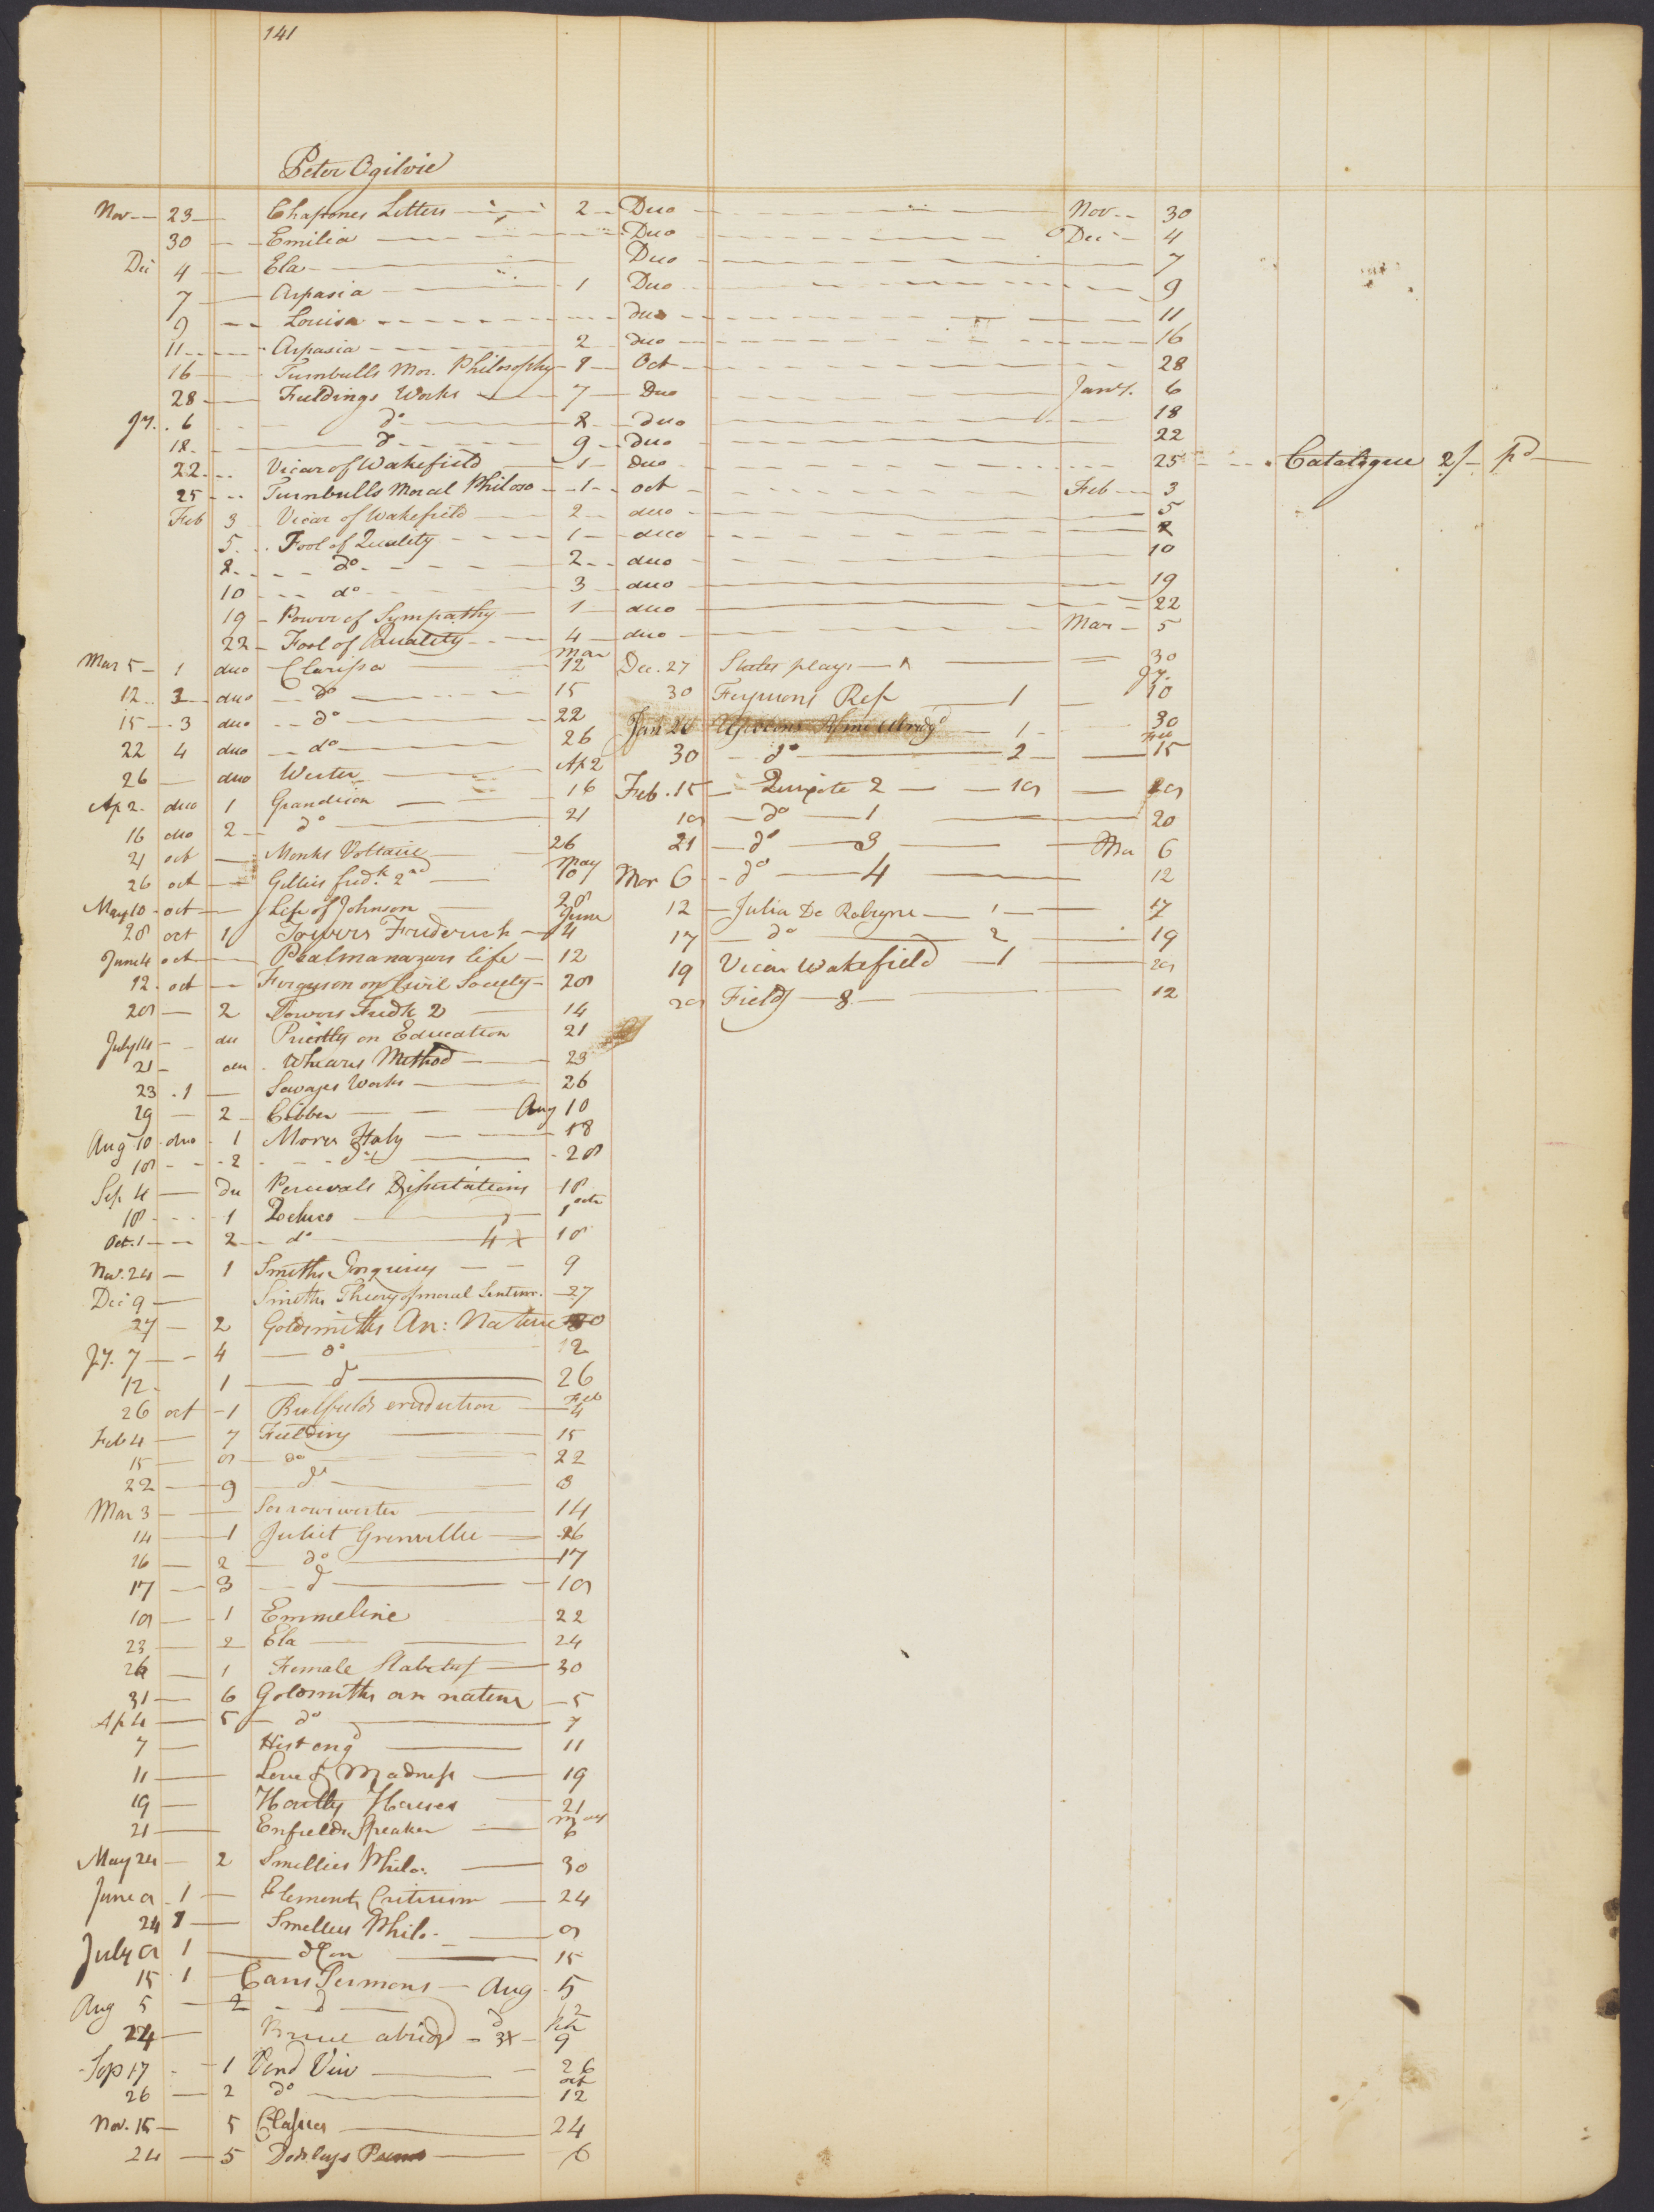 141
Peter Ogilvie
Nov 23 Chapones Letters 2 Duo Nov 30
30 Emilia Duo Dec 4
Dec 4 Ela Duo 7
7 Aspasia 1 Duo 9
9 Louisa duo 11
11 Aspasia 2 duo 16
16 Turnbulls Mor. Philosophy Oct 28
28 Fieldings Works 7 Duo Jany. 6
Jy. 6 do 8 duo 18
18 do 9 duo 22
22 Vicar of Wakefield 1 duo 25 Catalogue 2/ pd
25 Turnbulls Moral Philoso 1 oct Feb 3
Feb 3 Vicar of Wakefield 2 duo 5
5 Fool of Quality 1 duo 8
8 do 2 duo 10
10 do 3 duo 19
19 Power of Sympathy 1 duo 22
22 Fool of Quality 4 duo Mar 5
Mar 5 1 duo Clarissa Mar 12
12 2 duo do 15
15 3 duo do 22
22 4 duo do 26
26 duo Werter Ap 2
Ap 2 duo 1 Grandison 16
16 duo 2 do 21
21 oct Monks Voltaire 26
26 oct Gillies fredk. 2nd May 10
May 10 oct Life of Johnson 28
28 oct 1 Towers Frederick June 4
June 4 oct Psalmanazars life 12
12 oct Ferguson on Civil Society 28
28 2 Towers Fredk 2 14
July 14 du Priestly on Education 21
21 Whears Method 23
23 1 Savages Works 26
29 2 Cibber Aug 10
Aug 10 duo 1 Mores Italy 18
18 2 do 28
Sep 4 du Percivals Dissertations 18
18 1 Zeluco octr 1
Oct. 1 2 do 4 x 18
Nov. 24 1 Smiths Enquiry 9
Dec 9 Smiths Theory of moral Sentim. 27
27 2 Goldsmiths An: Nature 30
Jy. 7 4 do 12
12 1 do 26
26 oct 1 Bielfields erudition Feb 4
Feb 4 7 Fielding 15
15 8 do 22
22 9 do 3
Mar 3 Sorrows werter 14
14 1 Juliet Grenville 16
16 2 do 17
17 3 do 18
18 1 Emmeline 22
23 2 Ela 24
26 1 Female 30
31 6 Goldsmiths an nature 5
Ap 4 5 do 7
7 Hist eng 11
11 Love & Madness 19
19 Hartly House 21
21 Enfields Speaker May 6
May 24 2 Smellies Philo: 30
June 8 1 Elements Criticism 24
24 1 Smellies Philo. 8
July 8 1 15
15 1 Carrs Sermons Aug 5
Aug 5 2 do 12
24 Bruce abridgd 3x 9
Sep 17 1 Pend View 26
26 2 do oct 12
Nov. 15 5 24
24 5 Dodsleys Poems 6
Dec. 27 plays 1 30
30 Fergusons Rep 1 Jy. 10
Jan 20 1 30
30 do 2 Feb 15
Feb. 15 Quixote 2 18
18 do 1 20
21 do 3 Mar 6
Mar 6 do 4 12
12 Julia De Robigne 1 17
17 do 2 19
19 Vicar Wakefield 1 28
28 Fields 8 12